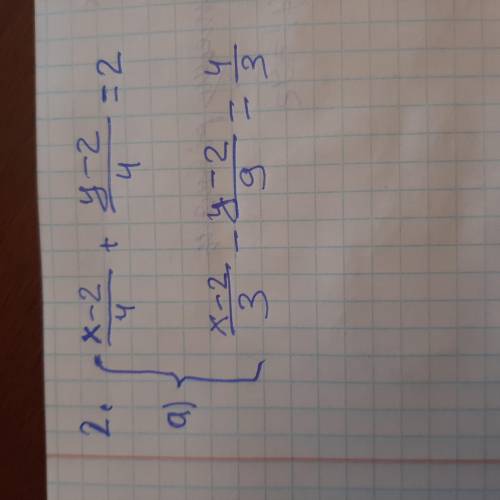 2. x-2/4 + y-2/4 = 2
a) x-2/3 - y-2/9 = 4/3